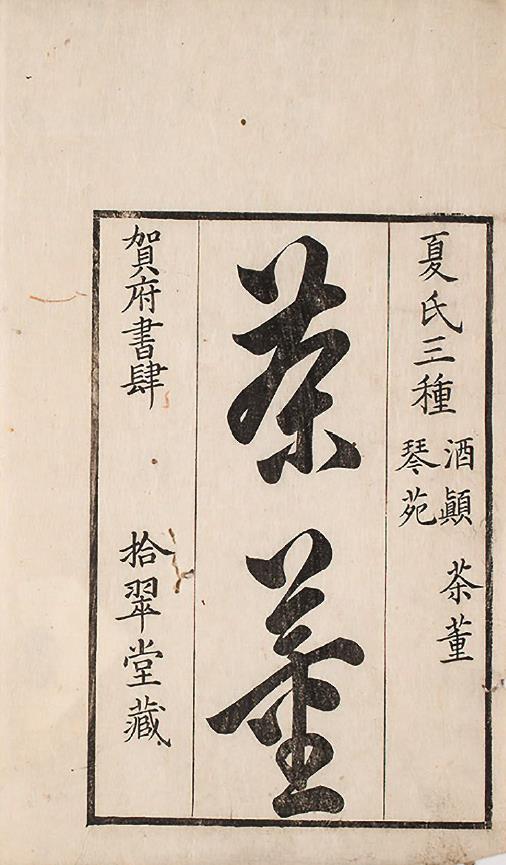 夏氏三種
酒顚
琴苑
茶董
茶董
賀府書肆
拾翠堂藏